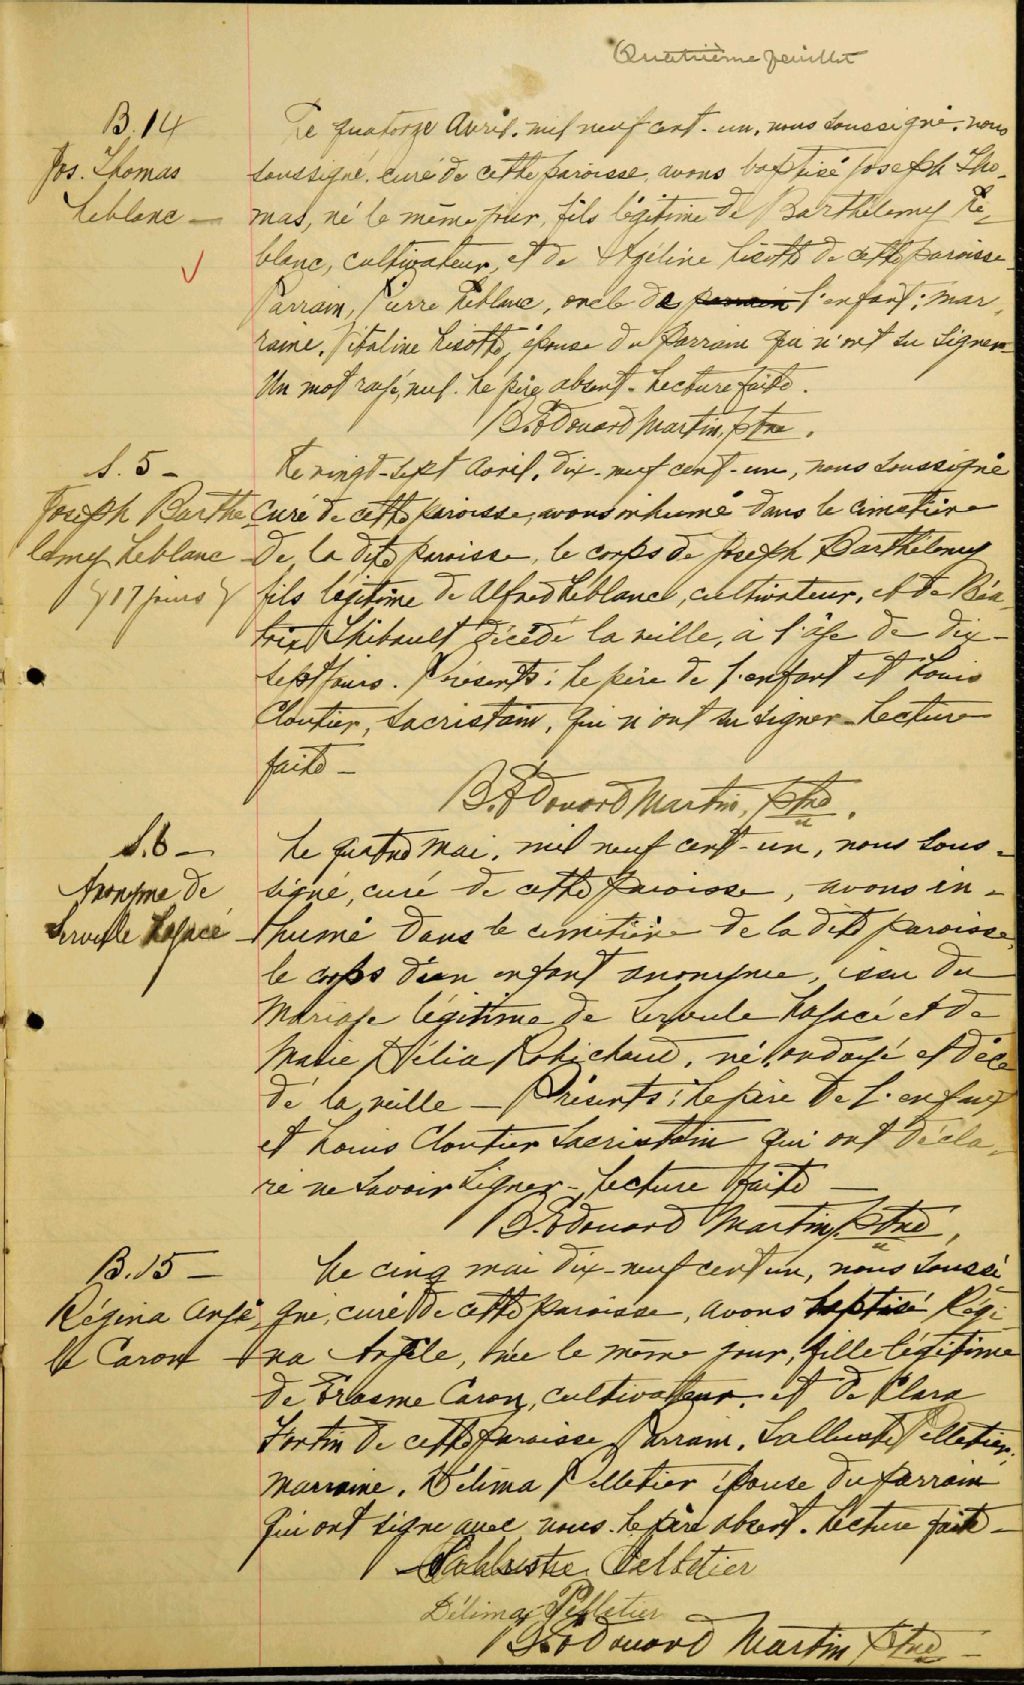 Quatrième feuillet
B. 14
Jos. Thomas
Leblanc —
Le quatorze Avril, mil neuf cent-un, nous soussigné, nous
soussigné, curé de cette paroisse, avons baptisé Joseph Tho-
mas, né le même jour, fils légitime de Barthélemy Le-
blanc, cultivateur, et de Azéline Lizotte de cette paroisse.
Parrain, Pierre Leblanc, oncle de parrain l'enfant; mar-
raine, Vitaline Lizotte, épouse du parrain qui n'ont su signer
Un mot rayé, nul. Le père absent. Lecture faite.
B. Edouard Martin, ptre.
S. 5 —
Joseph Barthe
lemy Leblanc
17 jours
Le vingt-sept Avril, dix-neuf cent-un, nous soussigné
Curé de cette paroisse, avons inhumé dans le cimetière
de la dite paroisse, le corps de Joseph Barthélemy
fils légitime de Alfred Leblanc, cultivateur, et de Béa-
trix Thibault décédé la veille, à l'âge de dix-
sept jours. Présents: le père de l'enfant et Louis
Cloutier, sacristain, qui n'ont su signer - Lecture
faite —
B. Edouard Martin, ptre.
S. 6 —
Anonyme de
Servule Lagacé
Le quatre Mai, mil neuf cent-un, nous sous-
signé, curé de cette paroisse, avons in-
humé dans le cimetière de la dite paroisse,
le corps d'un enfant anonyme, issu du
Mariage légitime de Servule Lagacé et de
Marie Délia Robichaud, né, ondoyé et décé
dé la veille — Présents: le père de l'enfant
et Louis Cloutier Sacristain qui ont décla-
ré ne savoir signer - Lecture faite —
B. Edouard Martin, Ptre,
B. 15 —
Régina Angè-
le Caron
Le cinq mai dix-neuf cent un, nous soussi
gné, curé de cette paroisse, avons baptisé Régi-
na Angèle, née le même jour, fille légitime
de Erasme Caron, cultivateur, et de Clara
Fortin de cette paroisse Parrain, Salluste Pelletier;
marraine, Délima Pelletier épouse du parrain
qui ont signé avec nous. le père absent. Lecture faite —
Salluste Pelletier
Délima Pelletier
B. Edouard Martin, Ptre —